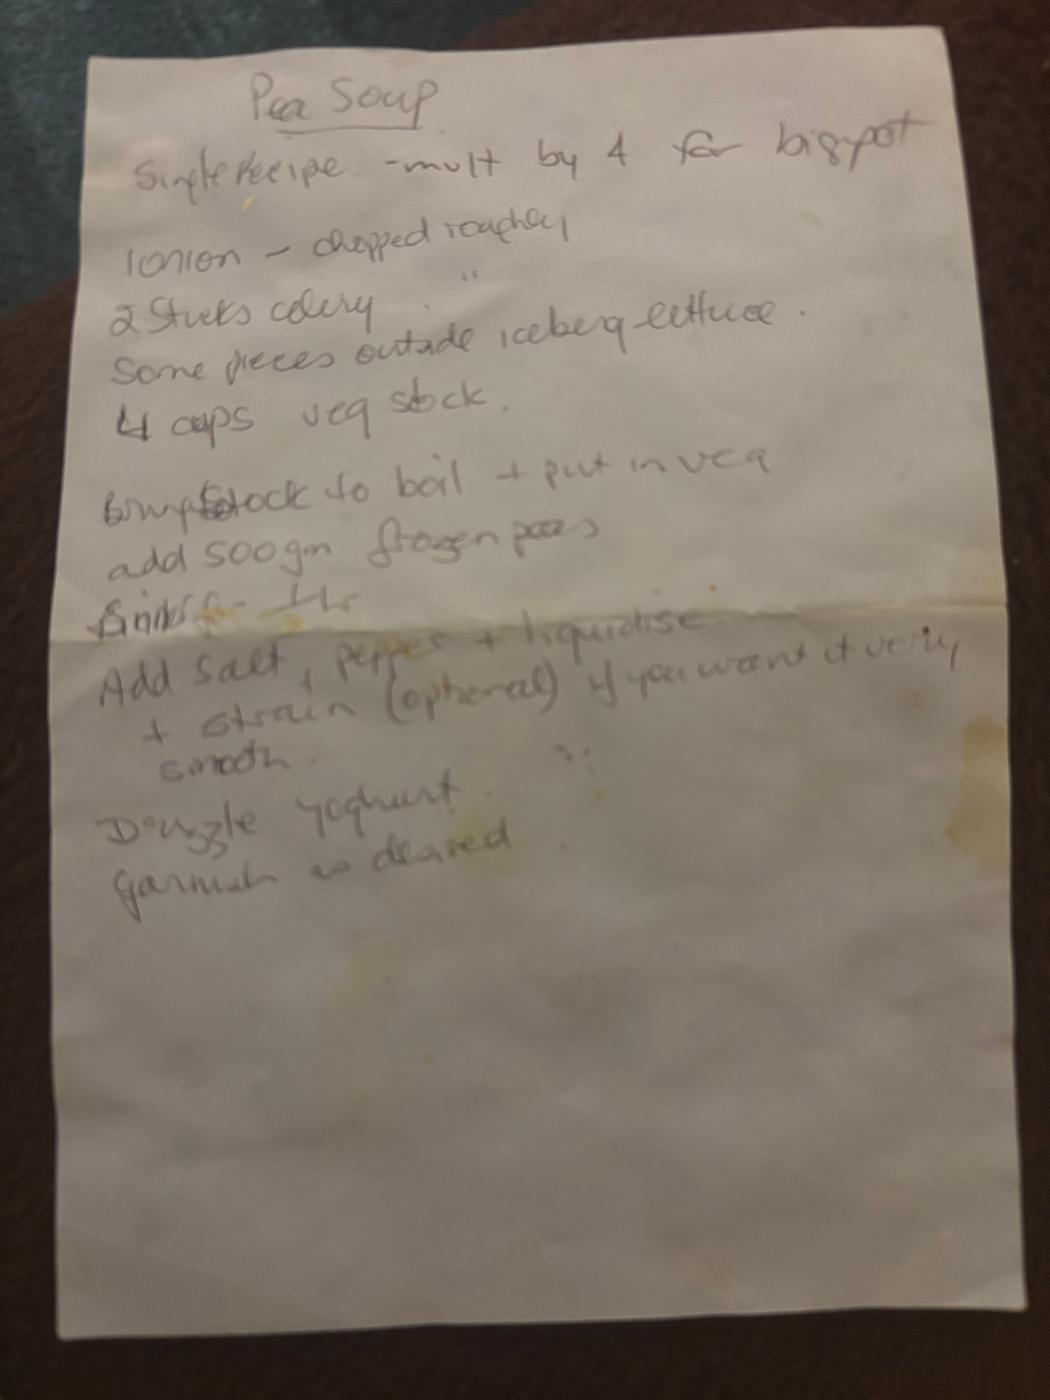 Pea Soup
Single Recipe - mult by 4 for big pot
1 onion - chopped roughly
2 Sticks celery "
Some pieces outside iceberg lettuce.
4 cups veg stock.
bring stock to boil + put in veg
add 500gm frozen peas
1 hr
Add salt, pepper + liquidise.
+ strain (optional) if you want it very
smooth.
Drizzle yoghurt.
Garnish as desired